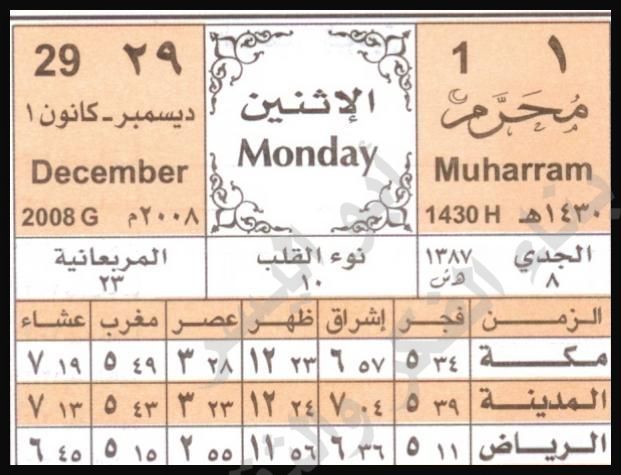 ١ 1
مُحَرَّم
Muharram
١٤٣٠هـ 1430 H
الإثنين
Monday
٢٩ 29
ديسمبر - كانون ١
December
٢٠٠٨م 2008 G
الجدي ١٣٨٧
٨ هـ ش
نوء القلب
١٠
المربعانية
٢٣
الزمن فجر إشراق ظهر عصر مغرب عشاء
مكة ٣٤ ٥ ٥٧ ٦ ٢٣ ١٢ ٢٨ ٣ ٤٩ ٥ ١٩ ٧
المدينة ٣٩ ٥ ٠٤ ٧ ٢٤ ١٢ ٢٣ ٣ ٤٣ ٥ ١٣ ٧
الرياض ١١ ٥ ٣٦ ٦ ٥٦ ١١ ٥٥ ٢ ١٥ ٥ ٤٥ ٦